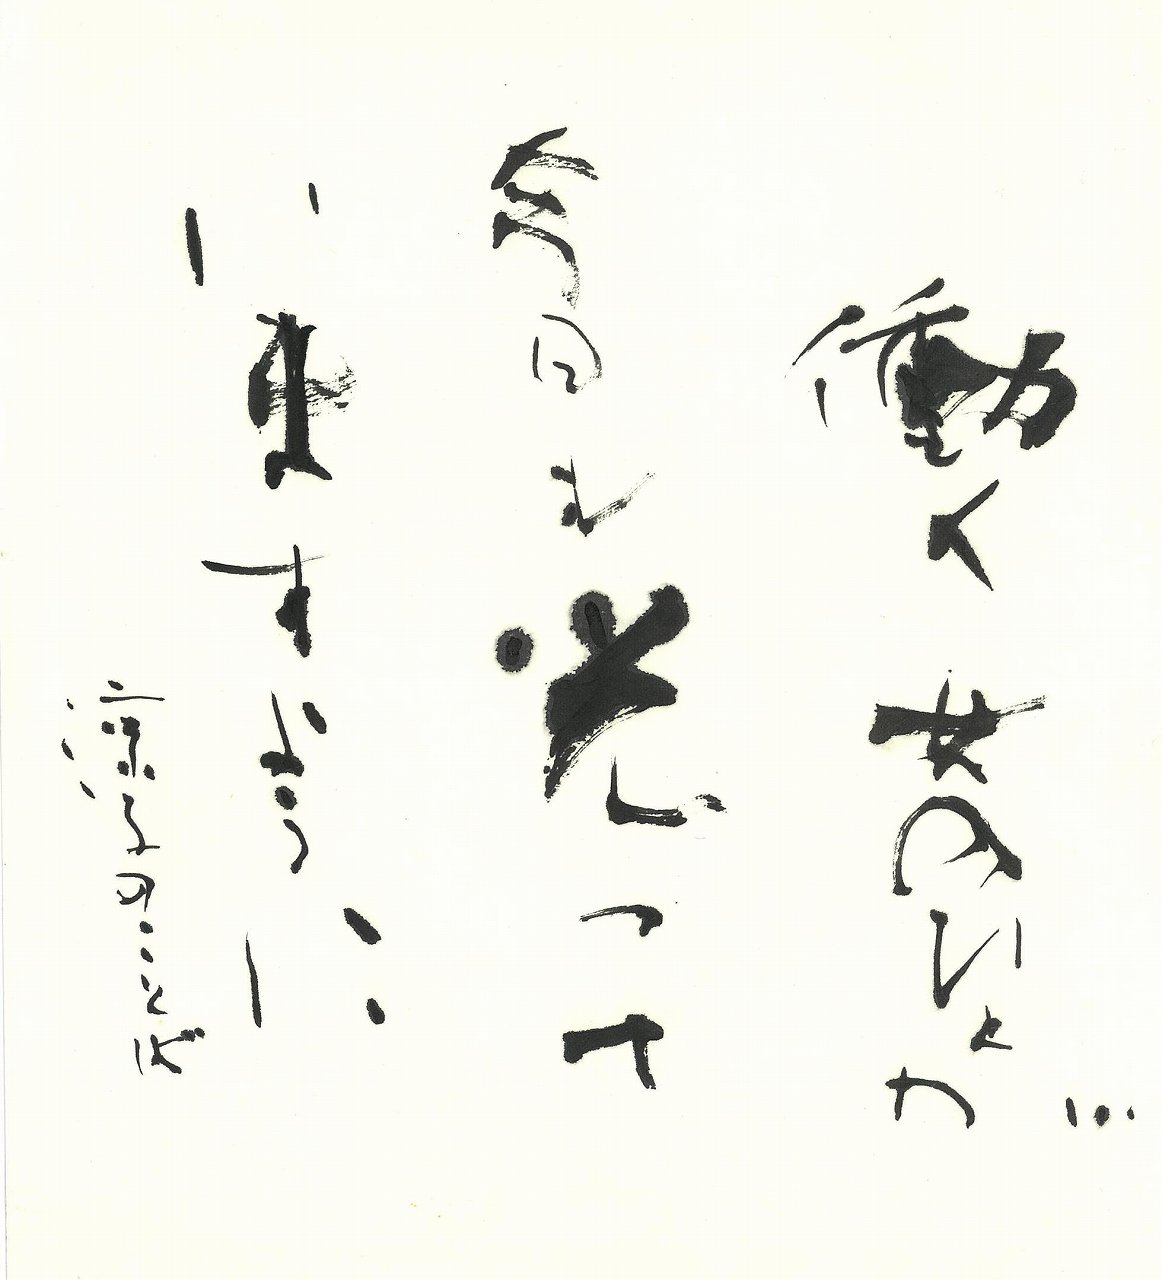 働く女のひとが
今日も光って
いますように
涼子のことば